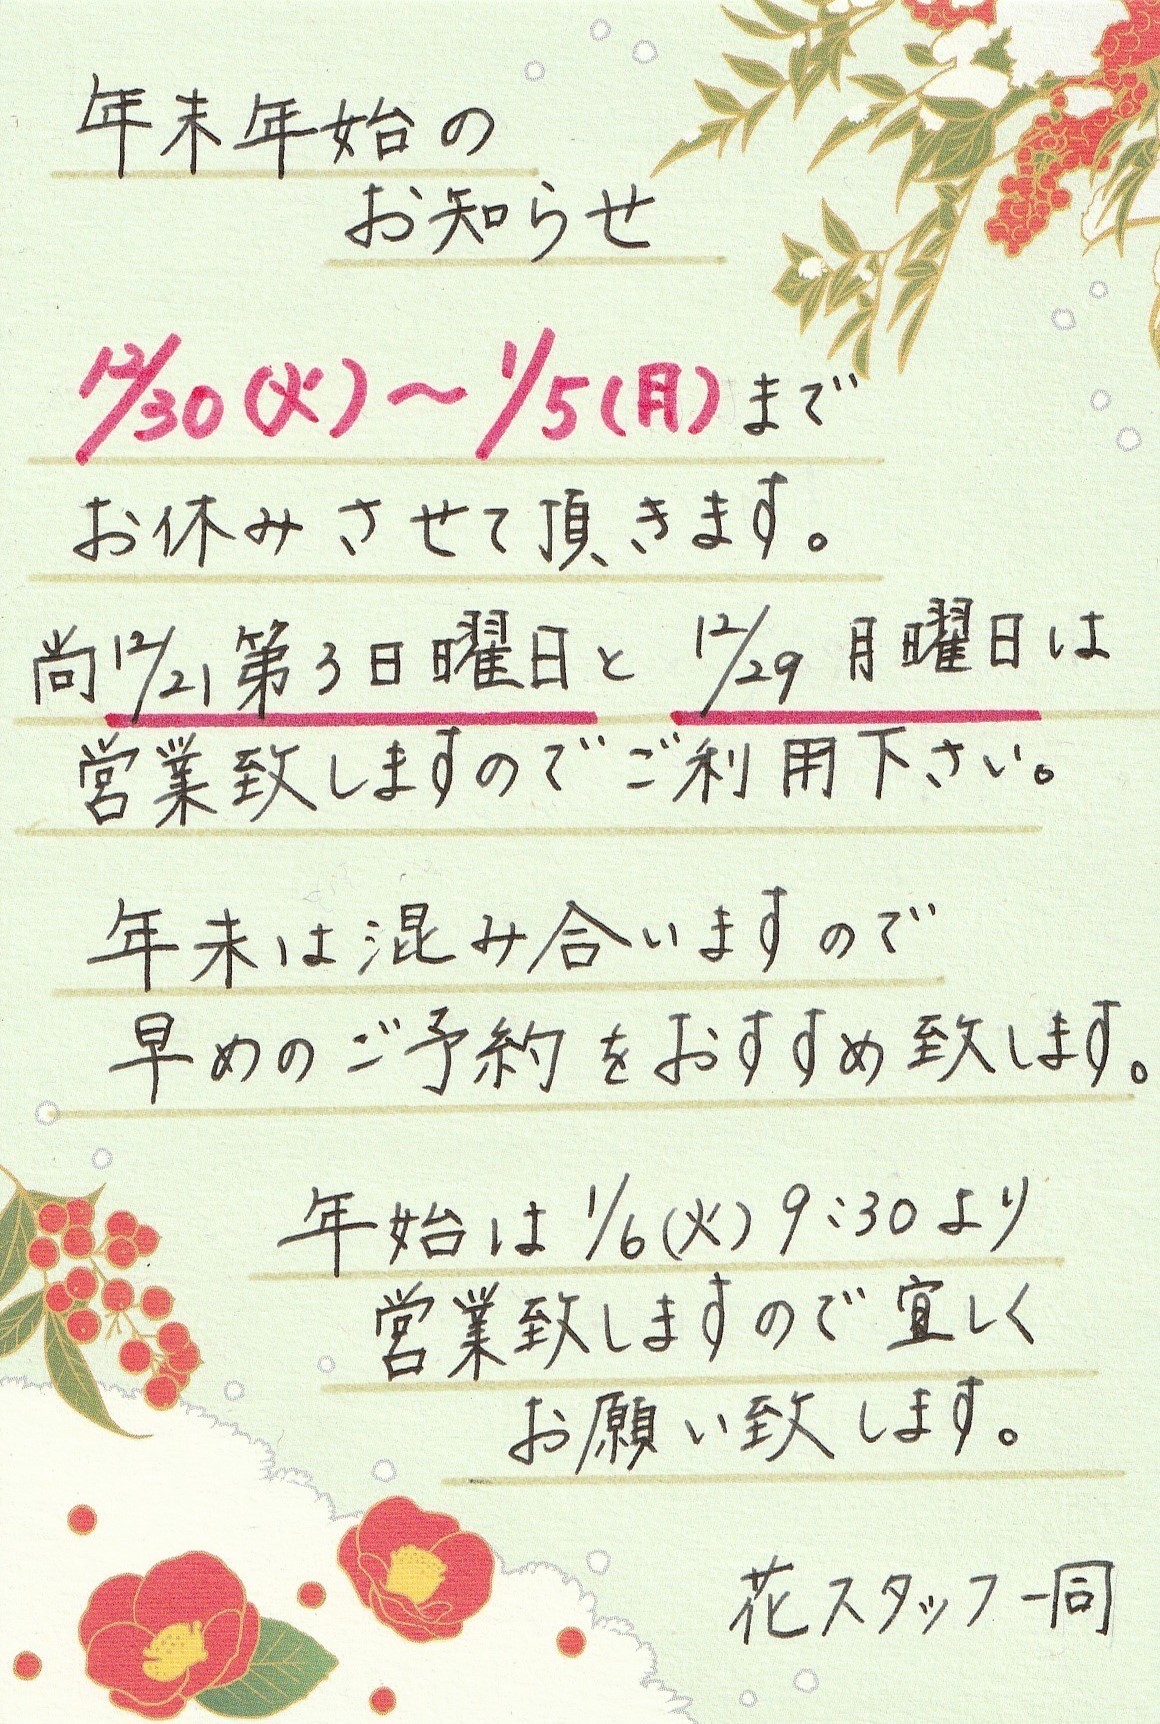 年末年始の
お知らせ
12/30(火)〜1/5(月)まで
お休みさせて頂きます。
尚12/21第3日曜日と12/29月曜日は
営業致しますのでご利用下さい。
年末は混み合いますので
早めのご予約をおすすめ致します。
年始は1/6(火)9:30より
営業致しますので宜しく
お願い致します。
花スタッフ一同